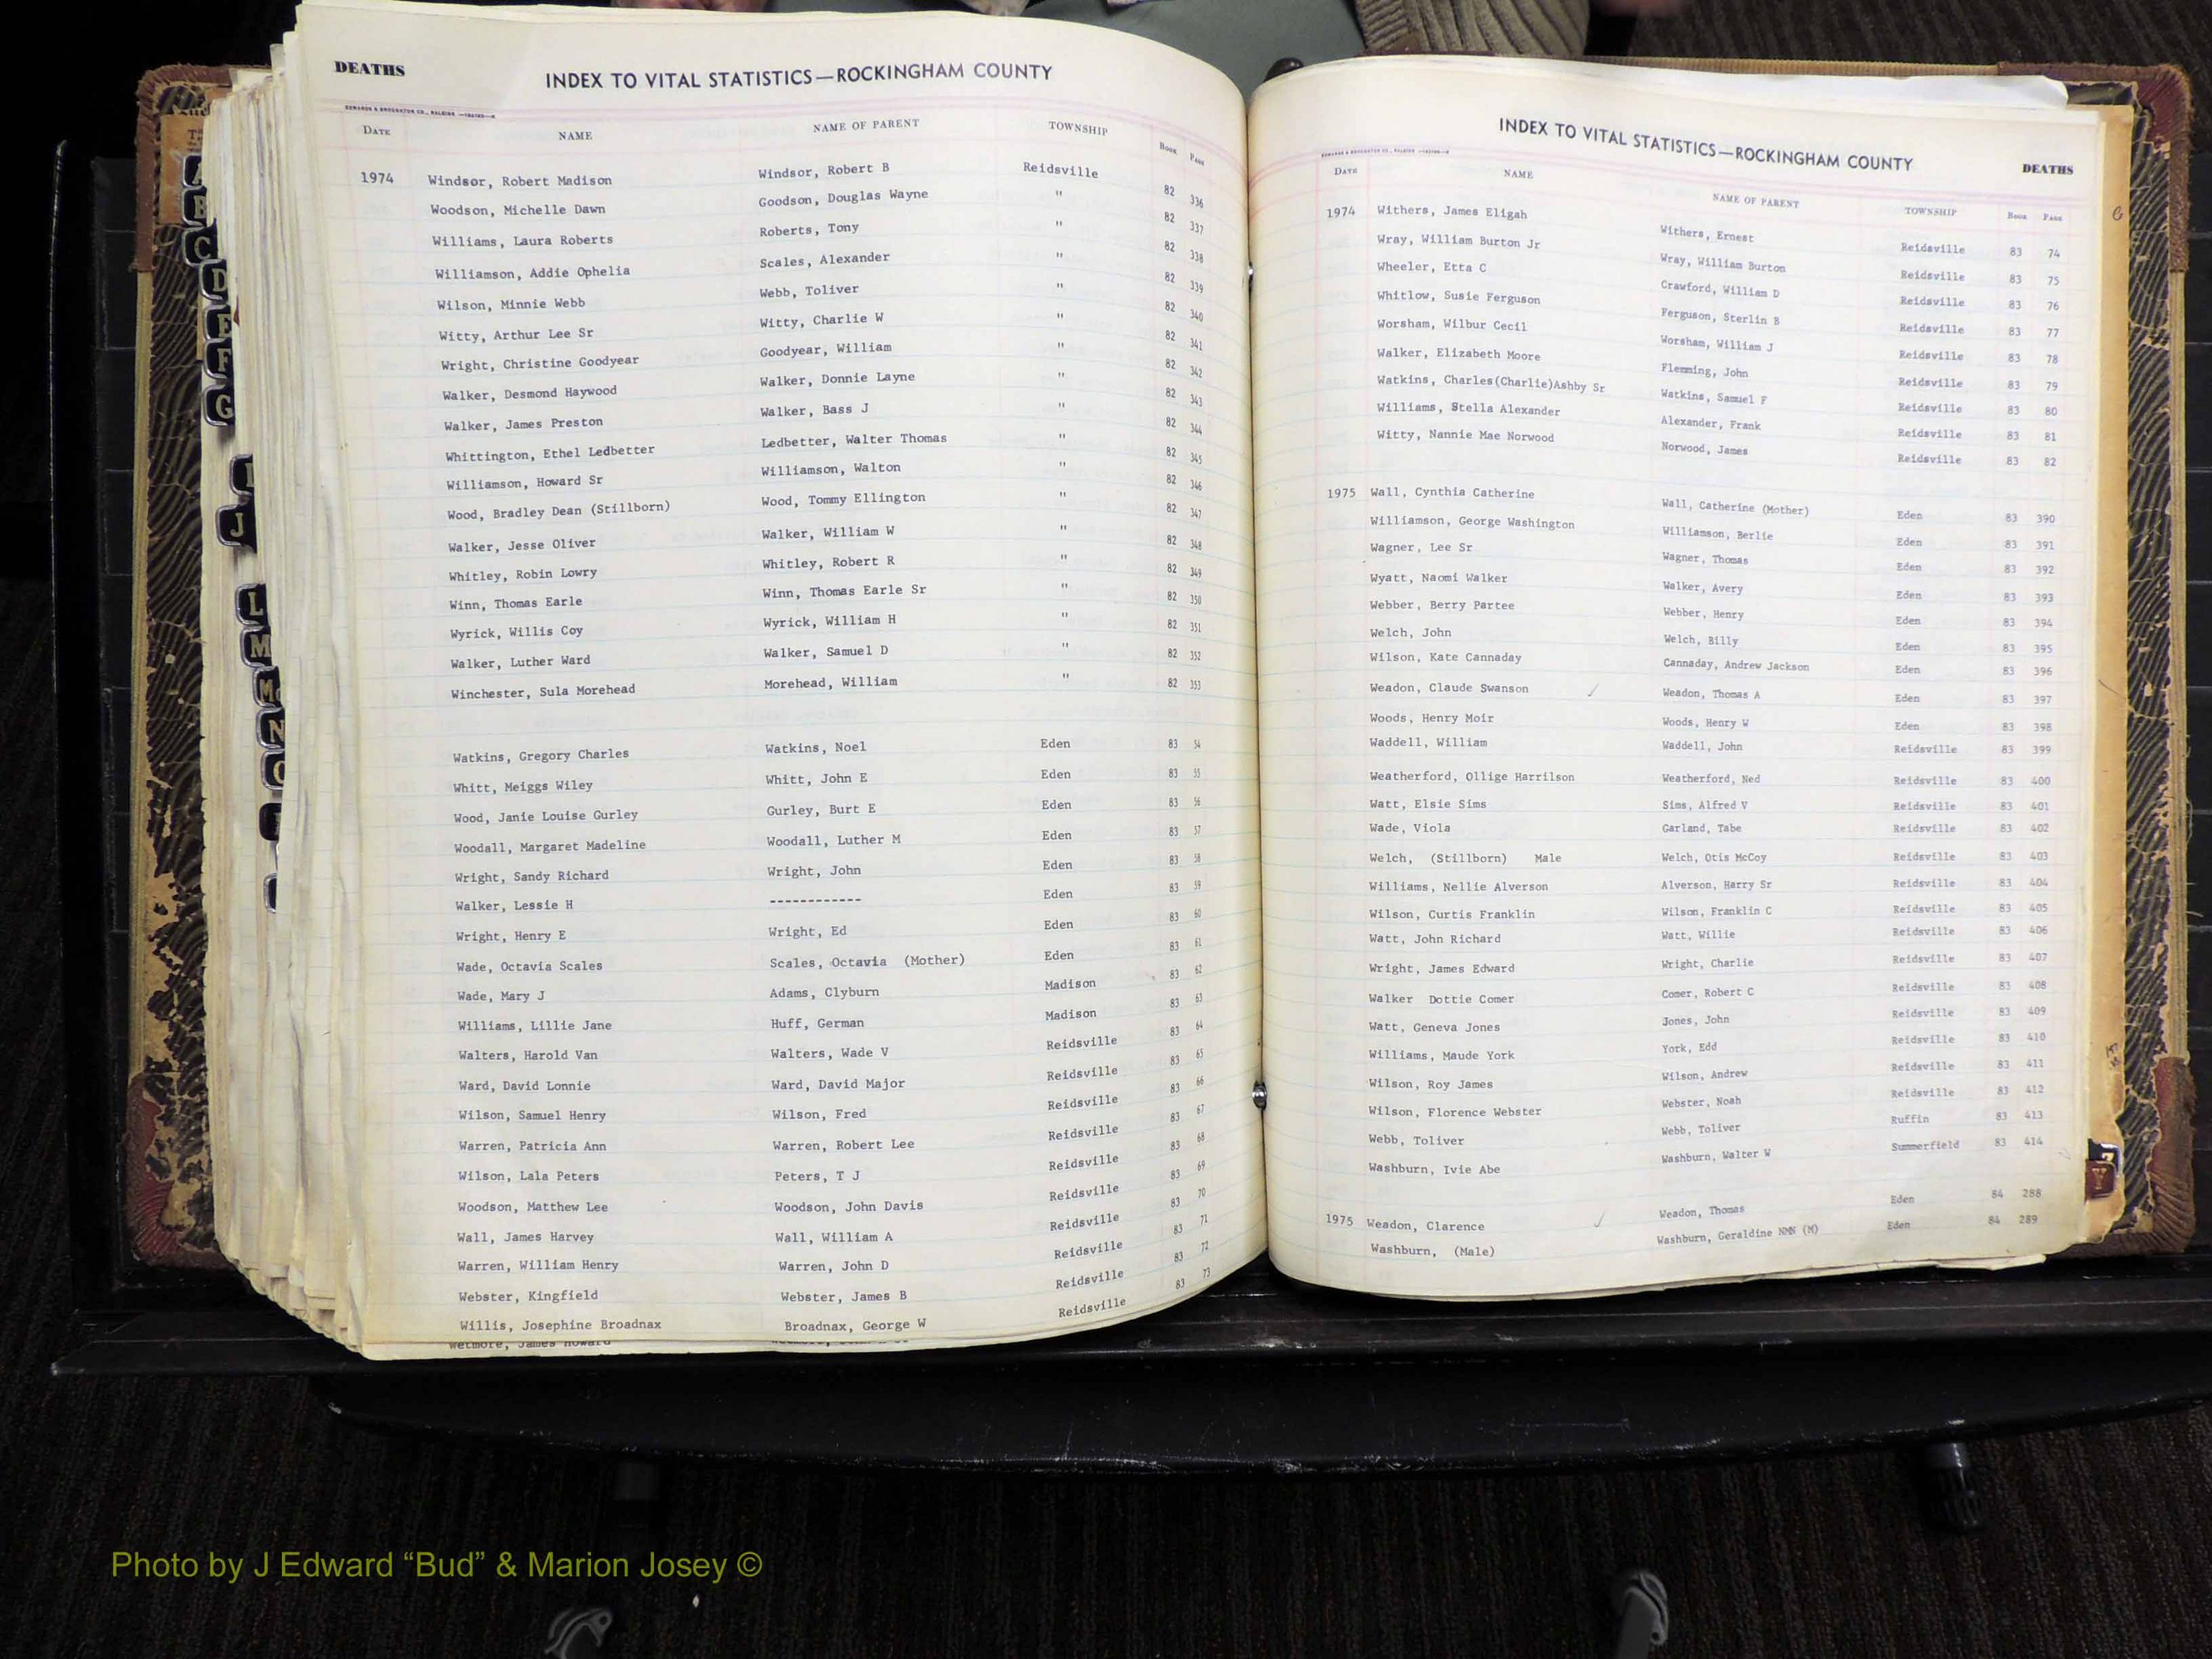 DEATHS
INDEX TO VITAL STATISTICS—ROCKINGHAM COUNTY
DATE NAME NAME OF PARENT TOWNSHIP Book Page
1974 Windsor, Robert Madison Windsor, Robert B Reidsville 82 336
Woodson, Michelle Dawn Goodson, Douglas Wayne " 82 337
Williams, Laura Roberts Roberts, Tony " 82 338
Williamson, Addie Ophelia Scales, Alexander " 82 339
Wilson, Minnie Webb Webb, Toliver " 82 340
Witty, Arthur Lee Sr Witty, Charlie W " 82 341
Wright, Christine Goodyear Goodyear, William " 82 342
Walker, Desmond Haywood Walker, Donnie Layne " 82 343
Walker, James Preston Walker, Bass J " 82 344
Whittington, Ethel Ledbetter Ledbetter, Walter Thomas " 82 345
Williamson, Howard Sr Williamson, Walton " 82 346
Wood, Bradley Dean (Stillborn) Wood, Tommy Ellington " 82 347
Walker, Jesse Oliver Walker, William W " 82 348
Whitley, Robin Lowry Whitley, Robert R " 82 349
Winn, Thomas Earle Winn, Thomas Earle Sr " 82 350
Wyrick, Willis Coy Wyrick, William H " 82 351
Walker, Luther Ward Walker, Samuel D " 82 352
Winchester, Sula Morehead Morehead, William " 82 353
Watkins, Gregory Charles Watkins, Noel Eden 83 54
Whitt, Meiggs Wiley Whitt, John E Eden 83 55
Wood, Janie Louise Gurley Gurley, Burt E Eden 83 56
Woodall, Margaret Madeline Woodall, Luther M Eden 83 57
Wright, Sandy Richard Wright, John Eden 83 58
Walker, Lessie H ------------ Eden 83 59
Wright, Henry E Wright, Ed Eden 83 60
Wade, Octavia Scales Scales, Octavia (Mother) Eden 83 61
Wade, Mary J Adams, Clyburn Madison 83 62
Williams, Lillie Jane Huff, German Madison 83 63
Walters, Harold Van Walters, Wade V Reidsville 83 64
Ward, David Lonnie Ward, David Major Reidsville 83 65
Wilson, Samuel Henry Wilson, Fred Reidsville 83 66
Warren, Patricia Ann Warren, Robert Lee Reidsville 83 67
Wilson, Lala Peters Peters, T J Reidsville 83 68
Woodson, Matthew Lee Woodson, John Davis Reidsville 83 69
Wall, James Harvey Wall, William A Reidsville 83 70
Warren, William Henry Warren, John D Reidsville 83 71
Webster, Kingfield Webster, James B Reidsville 83 72
Willis, Josephine Broadnax Broadnax, George W Reidsville 83 73
Wetmore, James Howard
INDEX TO VITAL STATISTICS—ROCKINGHAM COUNTY
DEATHS
DATE NAME NAME OF PARENT TOWNSHIP Book Page
1974 Withers, James Eligah Withers, Ernest Reidsville 83 74
Wray, William Burton Jr Wray, William Burton Reidsville 83 75
Wheeler, Etta C Crawford, William D Reidsville 83 76
Whitlow, Susie Ferguson Ferguson, Sterlin B Reidsville 83 77
Worsham, Wilbur Cecil Worsham, William J Reidsville 83 78
Walker, Elizabeth Moore Flemming, John Reidsville 83 79
Watkins, Charles(Charlie)Ashby Sr Watkins, Samuel F Reidsville 83 80
Williams, Stella Alexander Alexander, Frank Reidsville 83 81
Witty, Nannie Mae Norwood Norwood, James Reidsville 83 82
1975 Wall, Cynthia Catherine Wall, Catherine (Mother) Eden 83 390
Williamson, George Washington Williamson, Berlie Eden 83 391
Wagner, Lee Sr Wagner, Thomas Eden 83 392
Wyatt, Naomi Walker Walker, Avery Eden 83 393
Webber, Berry Partee Webber, Henry Eden 83 394
Welch, John Welch, Billy Eden 83 395
Wilson, Kate Cannaday Cannaday, Andrew Jackson Eden 83 396
Weadon, Claude Swanson ✓ Weadon, Thomas A Eden 83 397
Woods, Henry Moir Woods, Henry W Eden 83 398
Waddell, William Waddell, John Reidsville 83 399
Weatherford, Ollige Harrilson Weatherford, Ned Reidsville 83 400
Watt, Elsie Sims Sims, Alfred V Reidsville 83 401
Wade, Viola Garland, Tabe Reidsville 83 402
Welch, (Stillborn) Male Welch, Otis McCoy Reidsville 83 403
Williams, Nellie Alverson Alverson, Harry Sr Reidsville 83 404
Wilson, Curtis Franklin Wilson, Franklin C Reidsville 83 405
Watt, John Richard Watt, Willie Reidsville 83 406
Wright, James Edward Wright, Charlie Reidsville 83 407
Walker Dottie Comer Comer, Robert C Reidsville 83 408
Watt, Geneva Jones Jones, John Reidsville 83 409
Williams, Maude York York, Edd Reidsville 83 410
Wilson, Roy James Wilson, Andrew Reidsville 83 411
Wilson, Florence Webster Webster, Noah Reidsville 83 412
Webb, Toliver Webb, Toliver Ruffin 83 413
Washburn, Ivie Abe Washburn, Walter W Summerfield 83 414
1975 Weadon, Clarence ✓ Weadon, Thomas Eden 84 288
Washburn, (Male) Washburn, Geraldine NMN (M) Eden 84 289
A
B
C
D
E
F
G
J
L
M
Mc
N
Y
Photo by J Edward “Bud” & Marion Josey ©